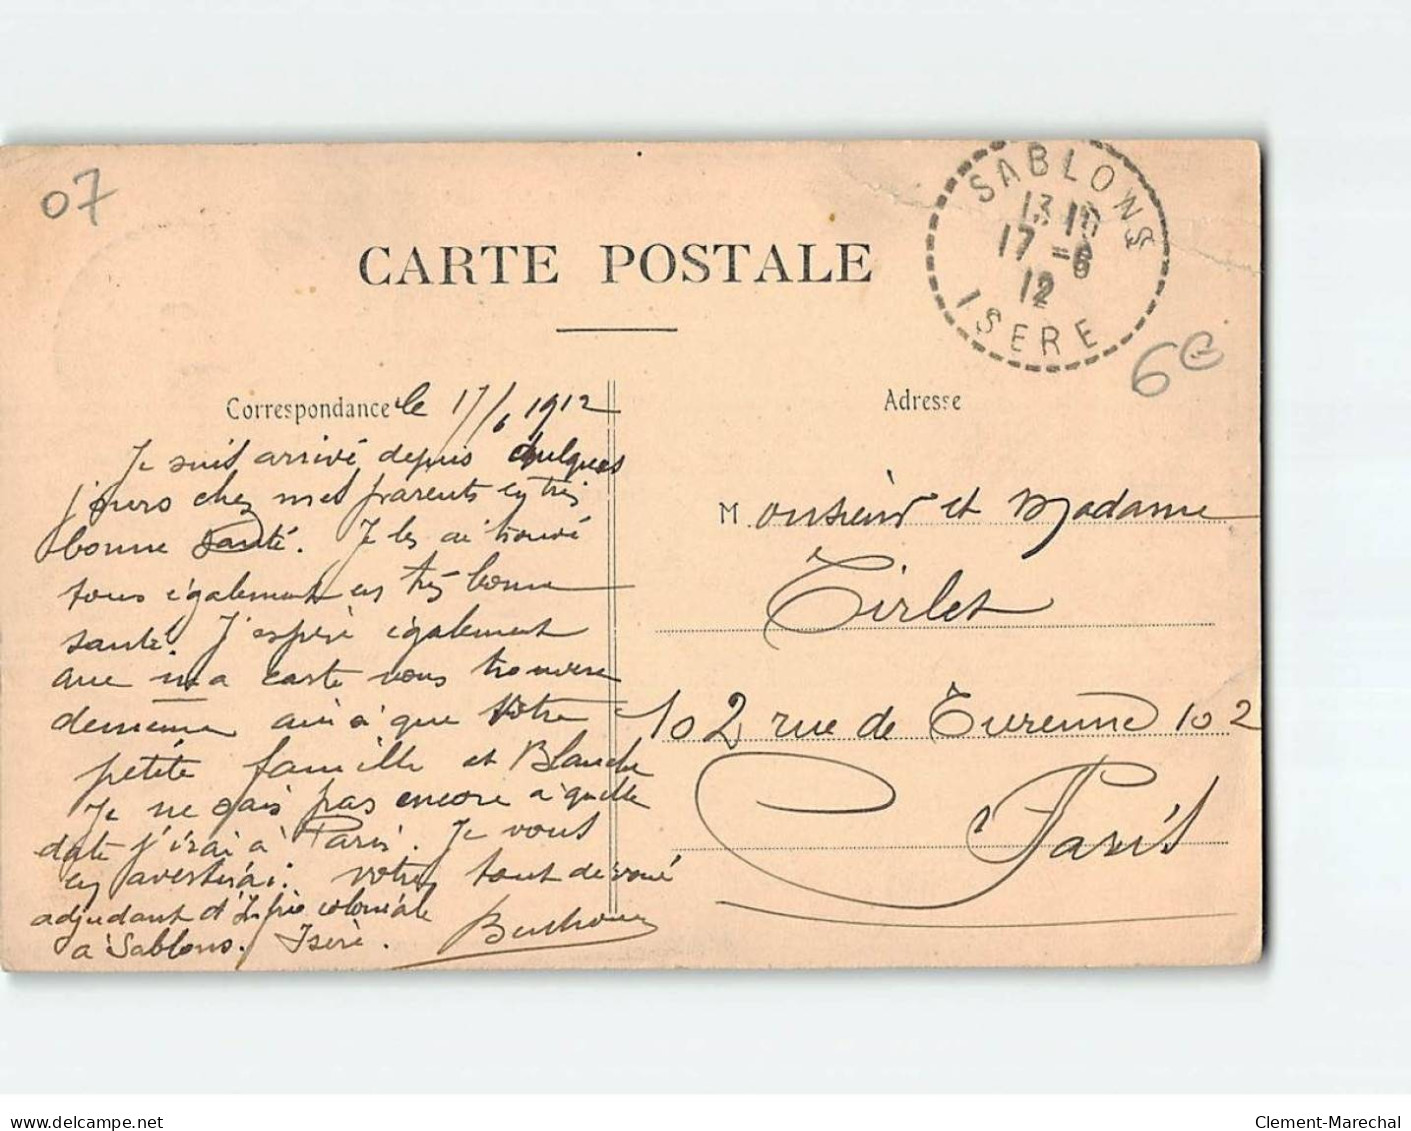 07
CARTE POSTALE
SABLONS
13 10
17 -6
12
ISERE
6
Correspondance le 17/6 1912
Adresse
Je suis arrivé depuis quelques
jours chez mes parents en très
bonne santé. Je les ai trouvé
tous également en très bonne
santé. J'espère également
que ma carte vous trouvera
de même ainsi que votre
petite famille et Blanche
Je ne sais pas encore à quelle
date j'irai à Paris. Je vous
en avertirai. votre tout dévoué
adjudant d'Infie coloniale
à Sablons. Isère.
Monsieur et Madame
Tirlet
102 rue de Turenne 102
Paris
www.delcampe.net
Clement-Marechal